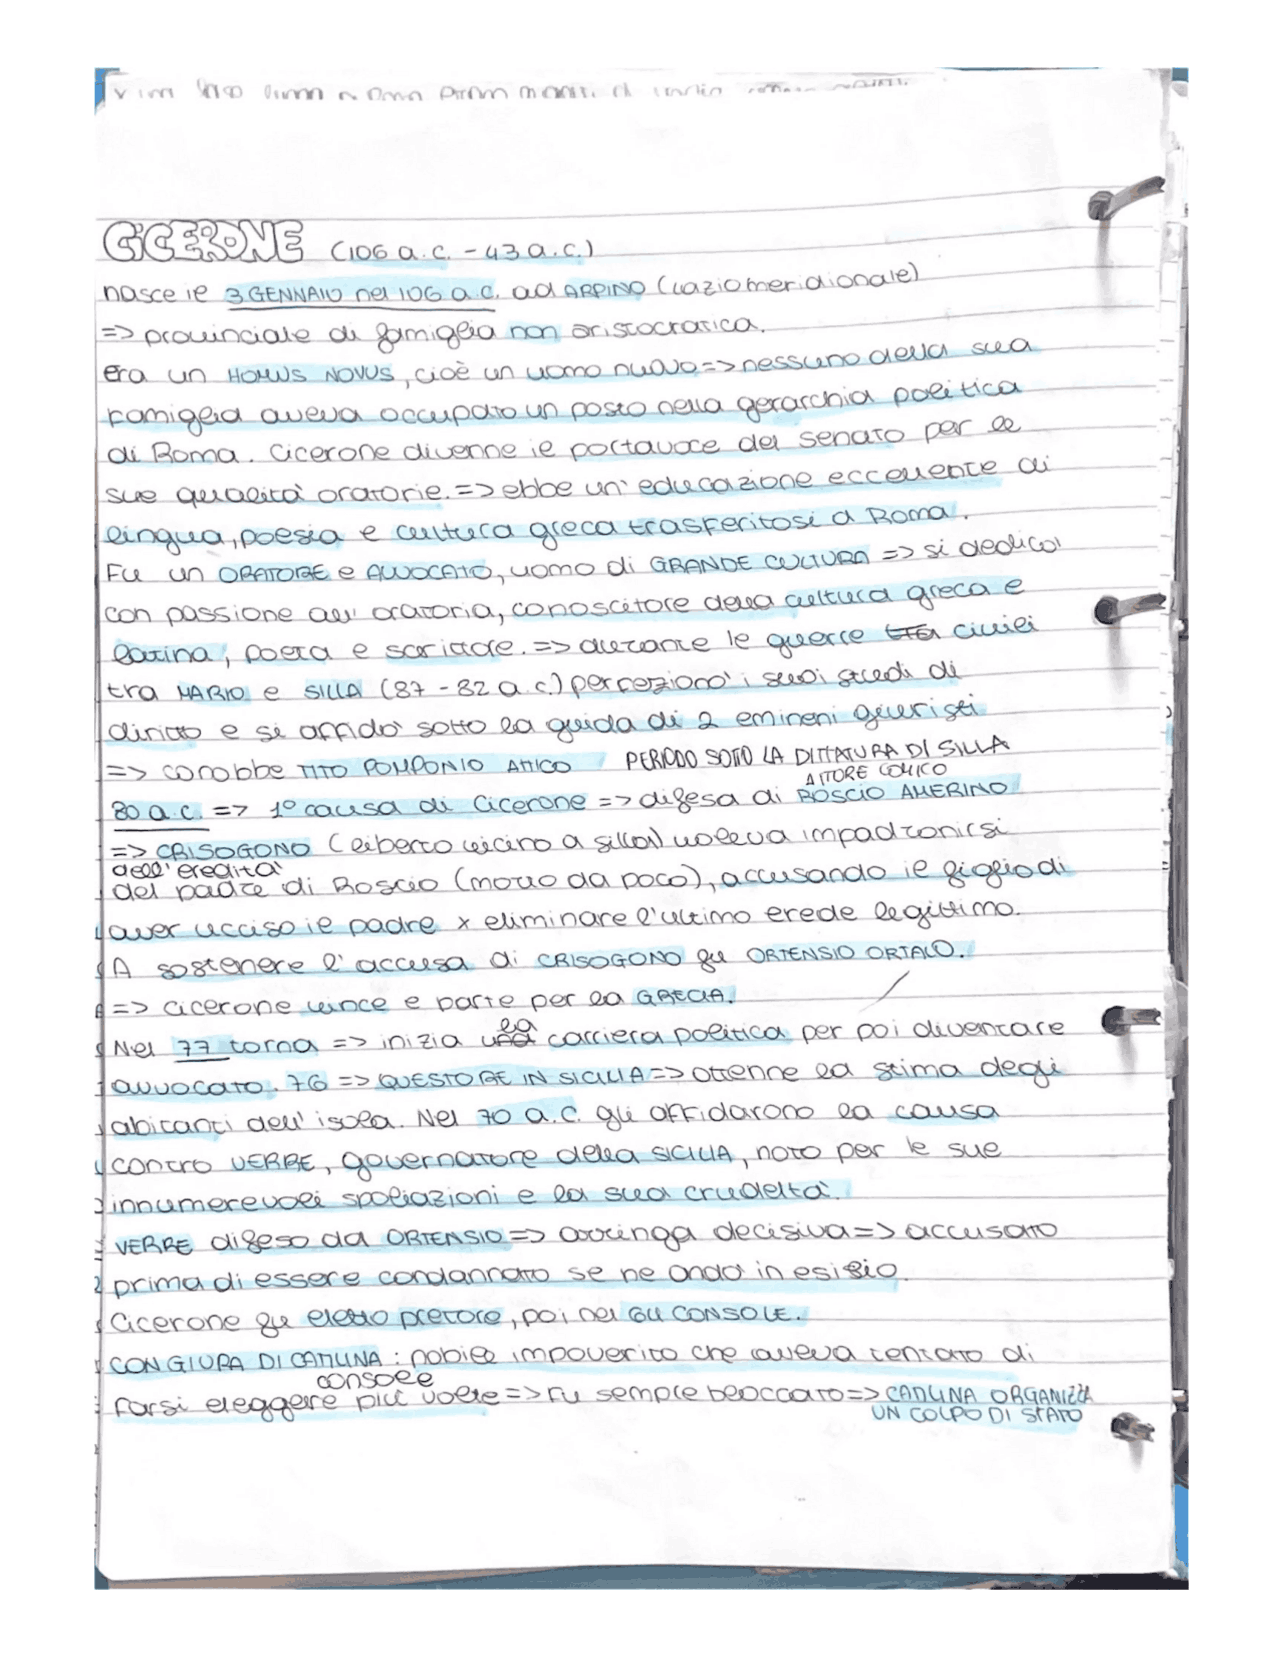 CICERONE (106 a.c. - 43 a.c.)
nasce il 3 GENNAIO nel 106 a.c. ad ARPINO (lazio meridionale)
=> provinciale di famiglia non aristocratica.
era un HOMUS NOVUS, cioè un uomo nuovo => nessuno della sua
famiglia aveva occupato un posto nella gerarchia politica
di Roma. Cicerone divenne il portavoce del senato per le
sue qualità oratorie. => ebbe un' educazione eccellente di
lingua, poesia e cultura greca trasferitosi a Roma.
Fu un ORATORE e AVVOCATO, uomo di GRANDE CULTURA => si dedicò
con passione all' oratoria, conoscitore della cultura greca e
latina, poeta e scrittore. => durante le guerre tra civili
tra MARIO e SILLA (87 - 82 a.c.) perfezionò i suoi studi di
diritto e si affidò sotto la guida di 2 emineni giuristi
=> conobbe TITO POMPONIO ATTICO PERIODO SOTTO LA DITTATURA DI SILLA
ATTORE COMICO
80 a.c. => 1° causa di Cicerone => difesa di ROSCIO AMERINO
=> CRISOGONO (liberto vicino a silla) voleva impadronirsi
dell' eredità
del padre di Roscio (morto da poco), accusando il figlio di
aver ucciso il padre x eliminare l'ultimo erede legittimo.
A sostenere l'accusa di CRISOGONO fu ORTENSIO ORTALO.
=> Cicerone vince e parte per la GRECIA.
la
Nel 77 torna => inizia una carriera politica per poi diventare
avvocato. 76 => QUESTORE IN SICILIA => ottenne la stima degli
abitanti dell' isola. Nel 70 a.c. gli affidarono la causa
contro VERRE, governatore della SICILIA, noto per le sue
innumerevoli spoliazioni e la sua crudeltà.
VERRE difeso da ORTENSIO => arringa decisiva => accusato
prima di essere condannato se ne andò in esilio.
Cicerone fu eletto pretore, poi nel 64 CONSOLE.
CONGIURA DI CATILINA : nobile impoverito che aveva tentato di
console
farsi eleggere più volte => fu sempre bloccato => CATILINA ORGANIZZA
UN COLPO DI STATO